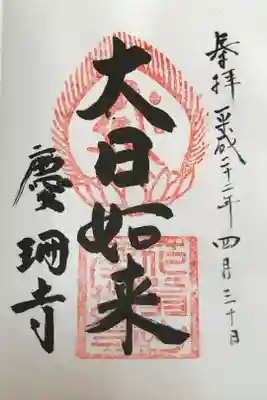 奉拝 平成二十二年 四月三十日
大日如来
慶珊寺